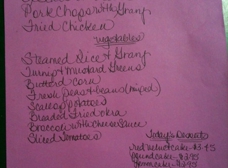 Pork Chops with Gravy
Fried Chicken
Vegetables
Steamed Rice & Gravy
Turnip & Mustard Greens
Buttered Corn
Fresh peas & beans (mixed)
Scallop potatoes
Breaded Fried okra
Broccoli with cheese sauce
Sliced Tomatoes
Today's Desserts
red velvet cake